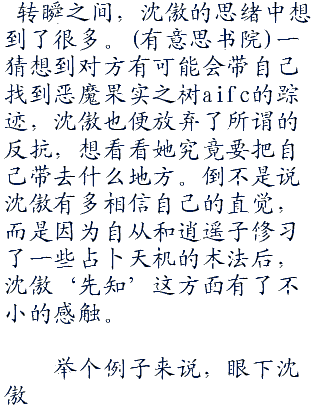 转瞬之间，沈傲的思绪中想
到了很多。(有意思书院)一
猜想到对方有可能会带自己
找到恶魔果实之树aifc的踪
迹，沈傲也便放弃了所谓的
反抗，想看看她究竟要把自
己带去什么地方。倒不是说
沈傲有多相信自己的直觉，
而是因为自从和逍遥子修习
了一些占卜天机的术法后，
沈傲‘先知’这方面有了不
小的感触。
举个例子来说，眼下沈
傲